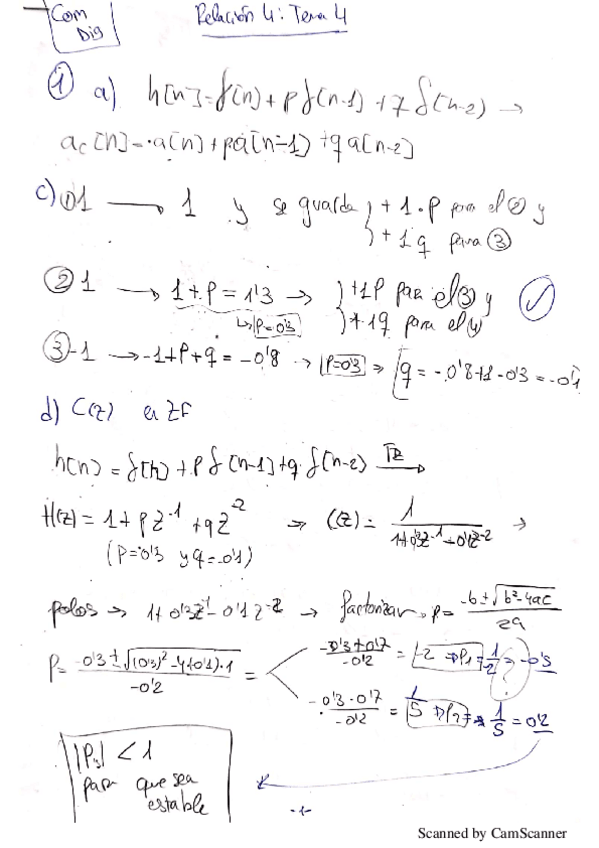 Com
Dig
Relación 4: Tema 4
① a) h[n]=δ(n)+pδ(n-1)+7δ(n-2) →
ac[n]=·a(n)+pa[n-1)+qa[n-2]
c) ① 1 → 1 y se guarda } + 1·p para el ② y
} + 1q para ③
② 1 → 1+p = 1'3 → } +1p para el ③ y ✓
↳ p=0'3 } + 1q para el 4
③ -1 → -1+p+q = -0'8 → p=0'3 ⇒ q = -0'8+1-0'3 = -0'1
d) C(z) en ZF
h(n) = δ(n)+pδ(n-1)+qδ(n-2) TZ →
H(z) = 1+pz^-1+qz^-2 ⇒ C(z) = 1/(1+0'3z^-1-0'1z^-2) →
(p=0'3 y q=-0'1)
polos → 1+0'3z^-1-0'1z^-2 → factorizar p = (-b±√(b²-4ac))/2a
p = (-0'3±√((0'3)²-4(-0'1)·1))/-0'2 =
(-0'3+0'7)/-0'2 = -2 ⇒ P1 = 1/-2 = -0'5 ?
(-0'3-0'7)/-0'2 = 5 ⇒ P2 = 1/5 = 0'2
|Pi| < 1
para que sea
estable
-1-
Scanned by CamScanner